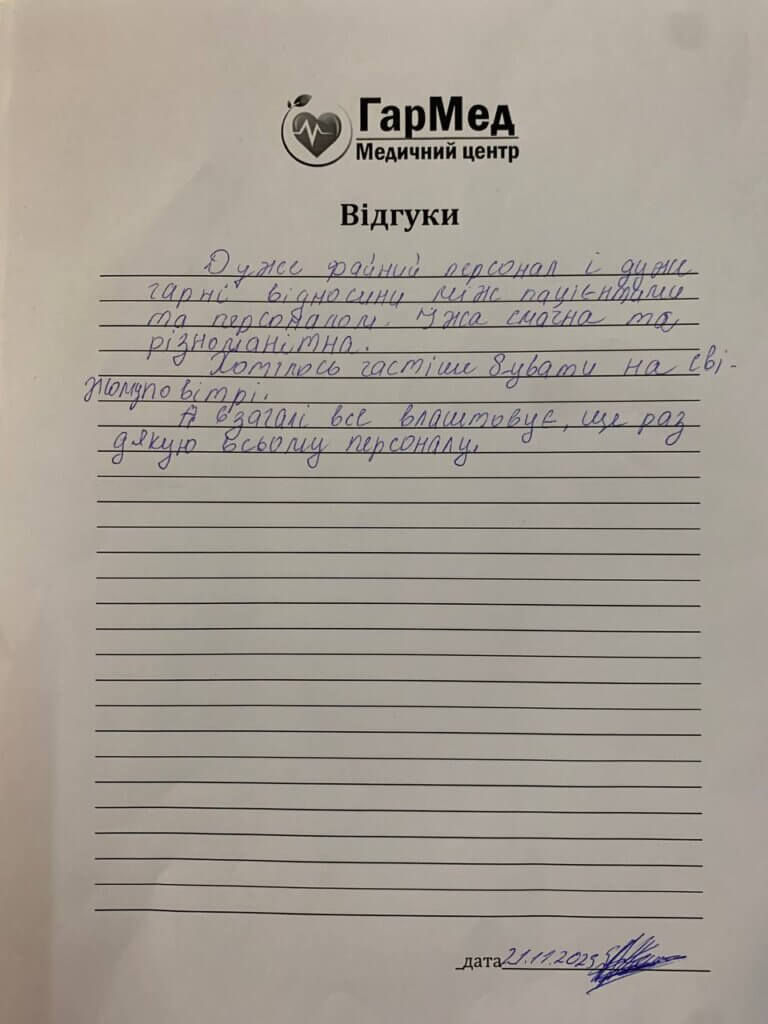 ГарМед
Медичний центр
Відгуки
Дуже файний персонал і дуже
гарні відносини між пацієнтами
та персоналом. Їжа смачна та
різноманітна.
Хотілось частіше бувати на сві-
жому повітрі.
А взагалі все влаштовує, ще раз
дякую всьому персоналу.
дата 21.11.202